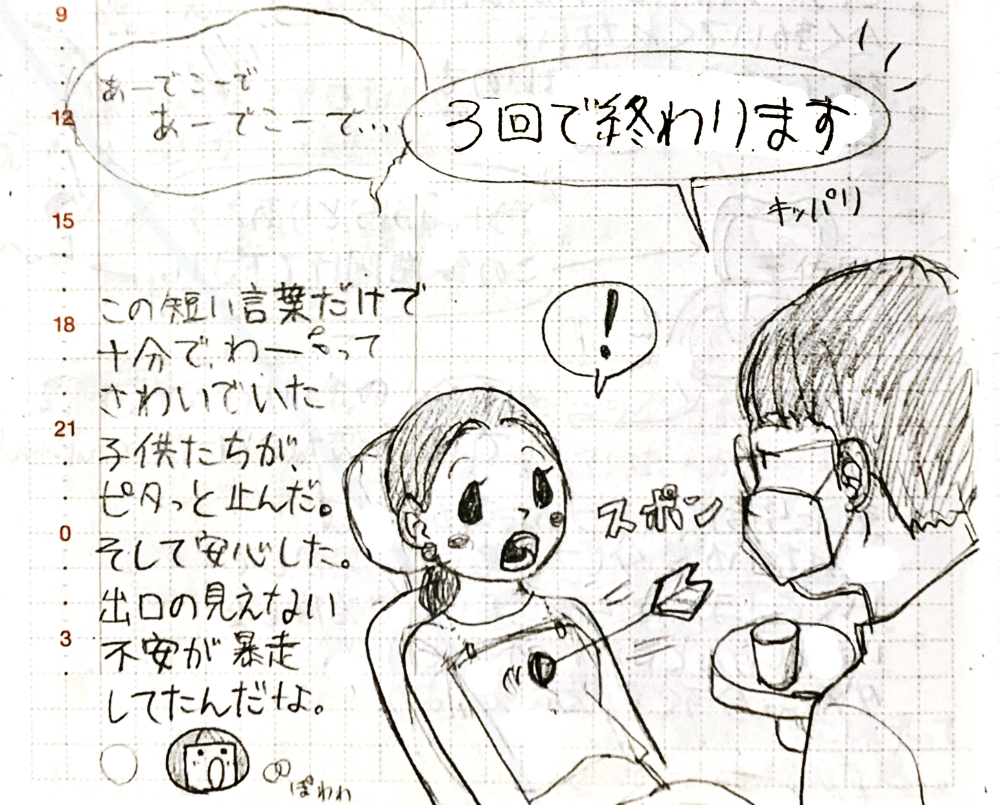 あーでこーで
あーでこーで...
3回で終わります
キッパリ
!
この短い言葉だけで
十分で、わーーって
さわいでいた
子供たちが、
ピタっと止んだ。
そして安心した。
出口の見えない
不安が暴走
してたんだな。
スポン
ぽわわ
9
12
15
18
21
0
3